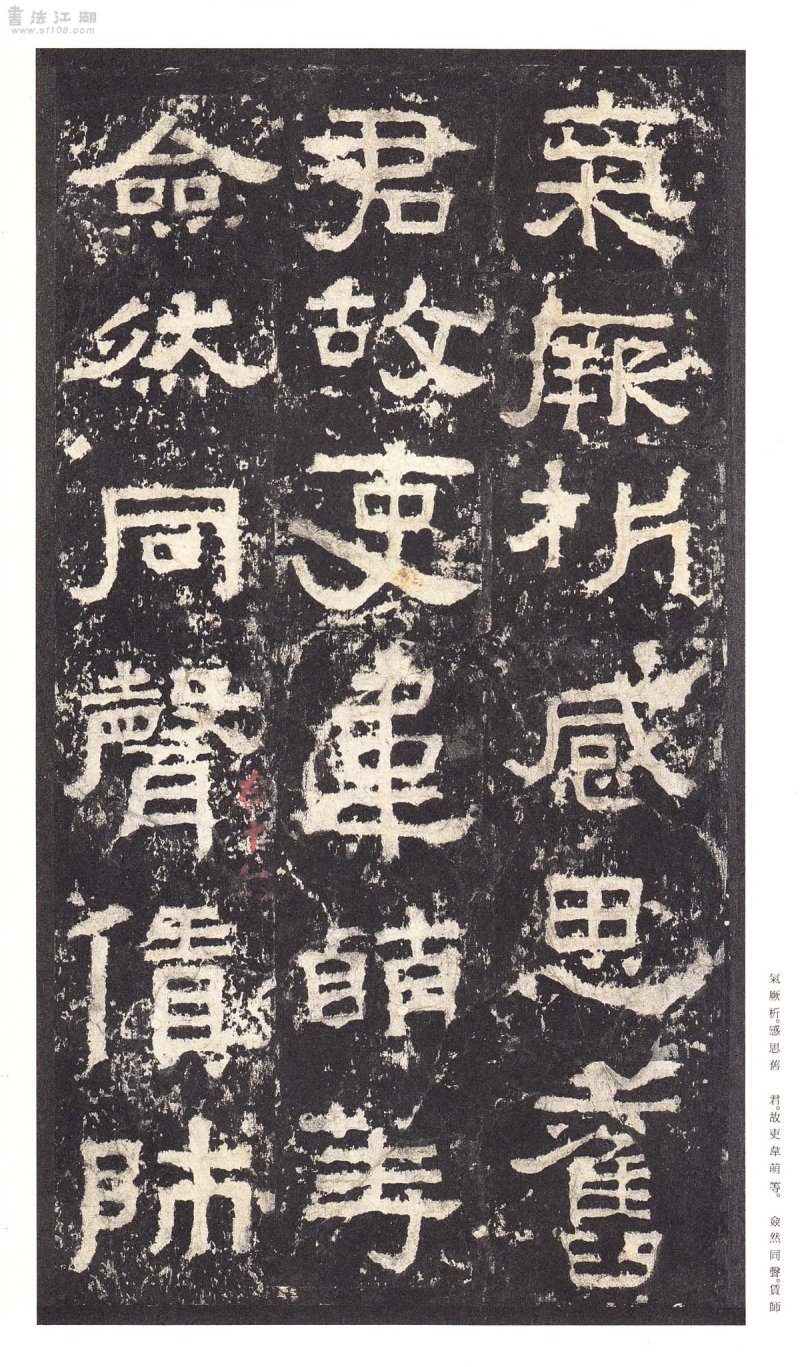 氣厥析感思舊
君故吏韋萌等
僉然同聲賃師
氣厥析。感思舊　君。故吏韋萌等。　僉然同聲。賃師
書法江湖
www.af108.com